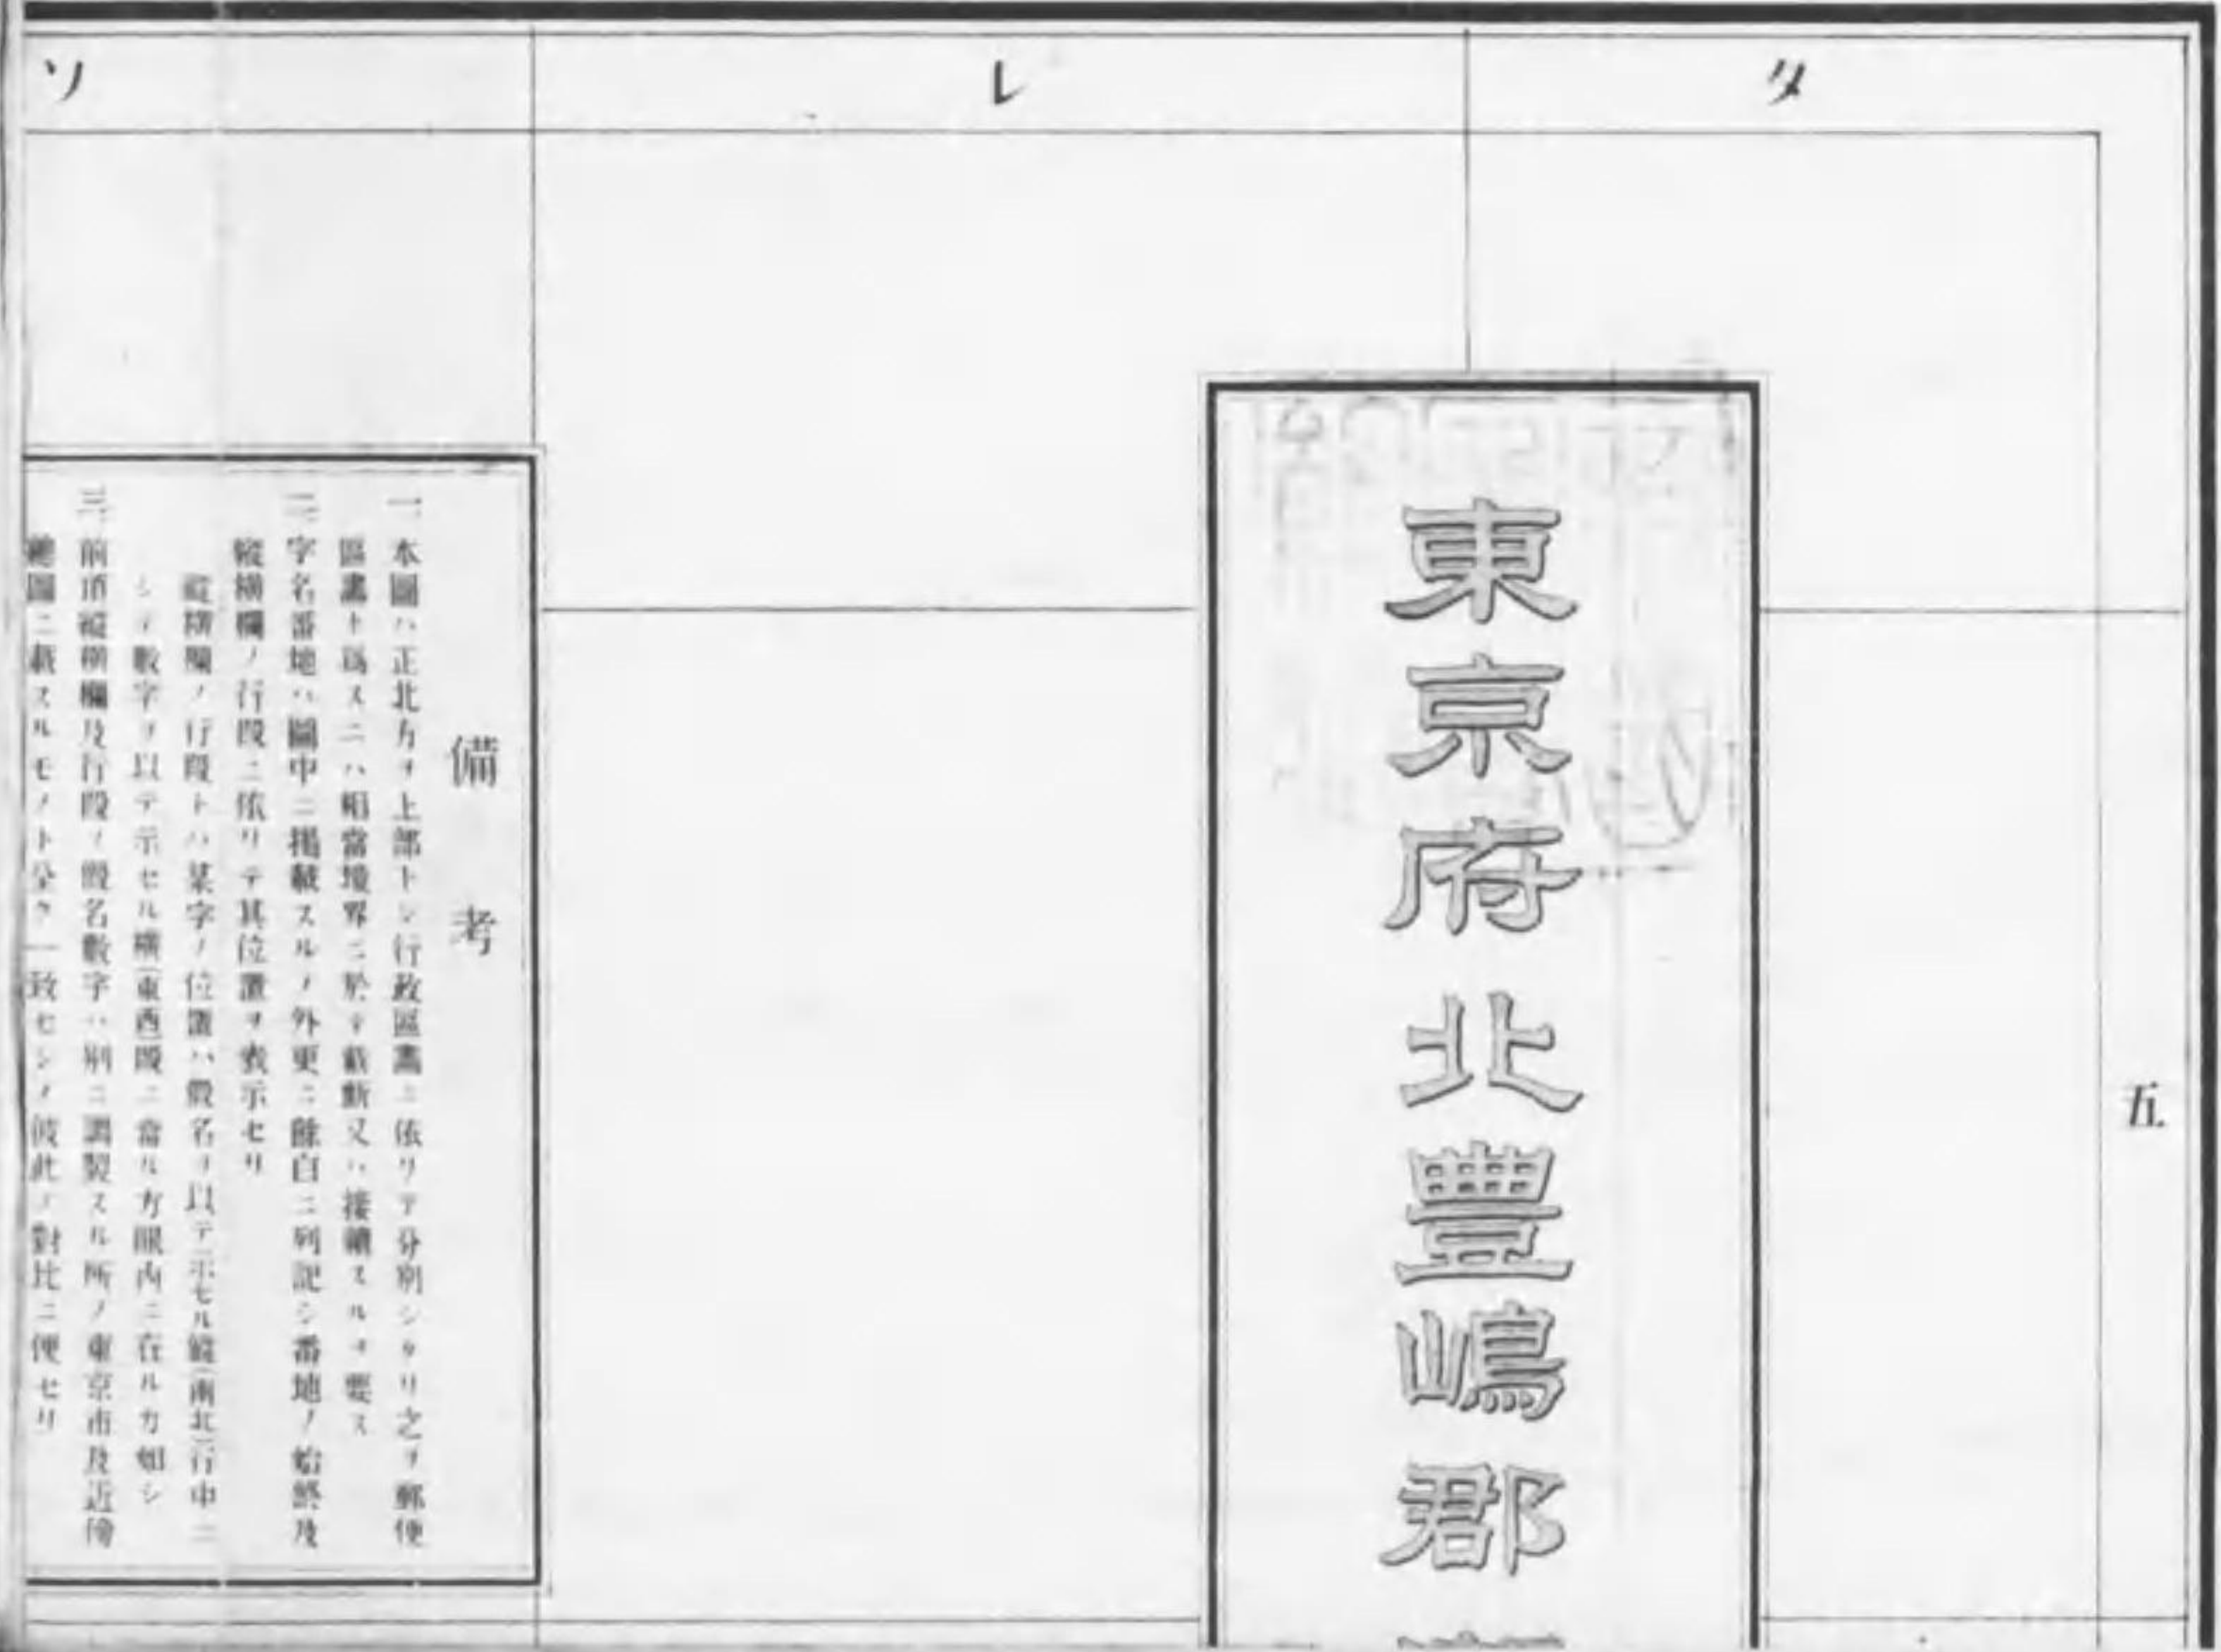 タ
レ
ソ
五
東京府北豐嶋郡
備考
一、本圖ハ正北方ヲ上部トシ行政區畫ニ依リテ分別シタリ之ヲ郵便
區畫ト爲スニハ相當境界ニ於テ截斷又ハ接續スルヲ要ス
二、字名番地ハ圖中ニ揭載スルノ外更ニ餘白ニ列記シ番地ノ始終及
縱橫欄ノ行段ニ依リテ其位置ヲ表示セリ
縱橫欄ノ行段トハ某字ノ位置ハ假名ヲ以テ示セル縱(南北)行中ニ
シテ數字ヲ以テ示セル橫(東西)段ニ當ル方眼内ニ在ルカ如シ
三、前項縱橫欄及行段ノ假名數字ハ別ニ調製スル所ノ東京市及近傍
總圖ニ載スルモノト全ク一致セシメ彼此ノ對比ニ便セリ